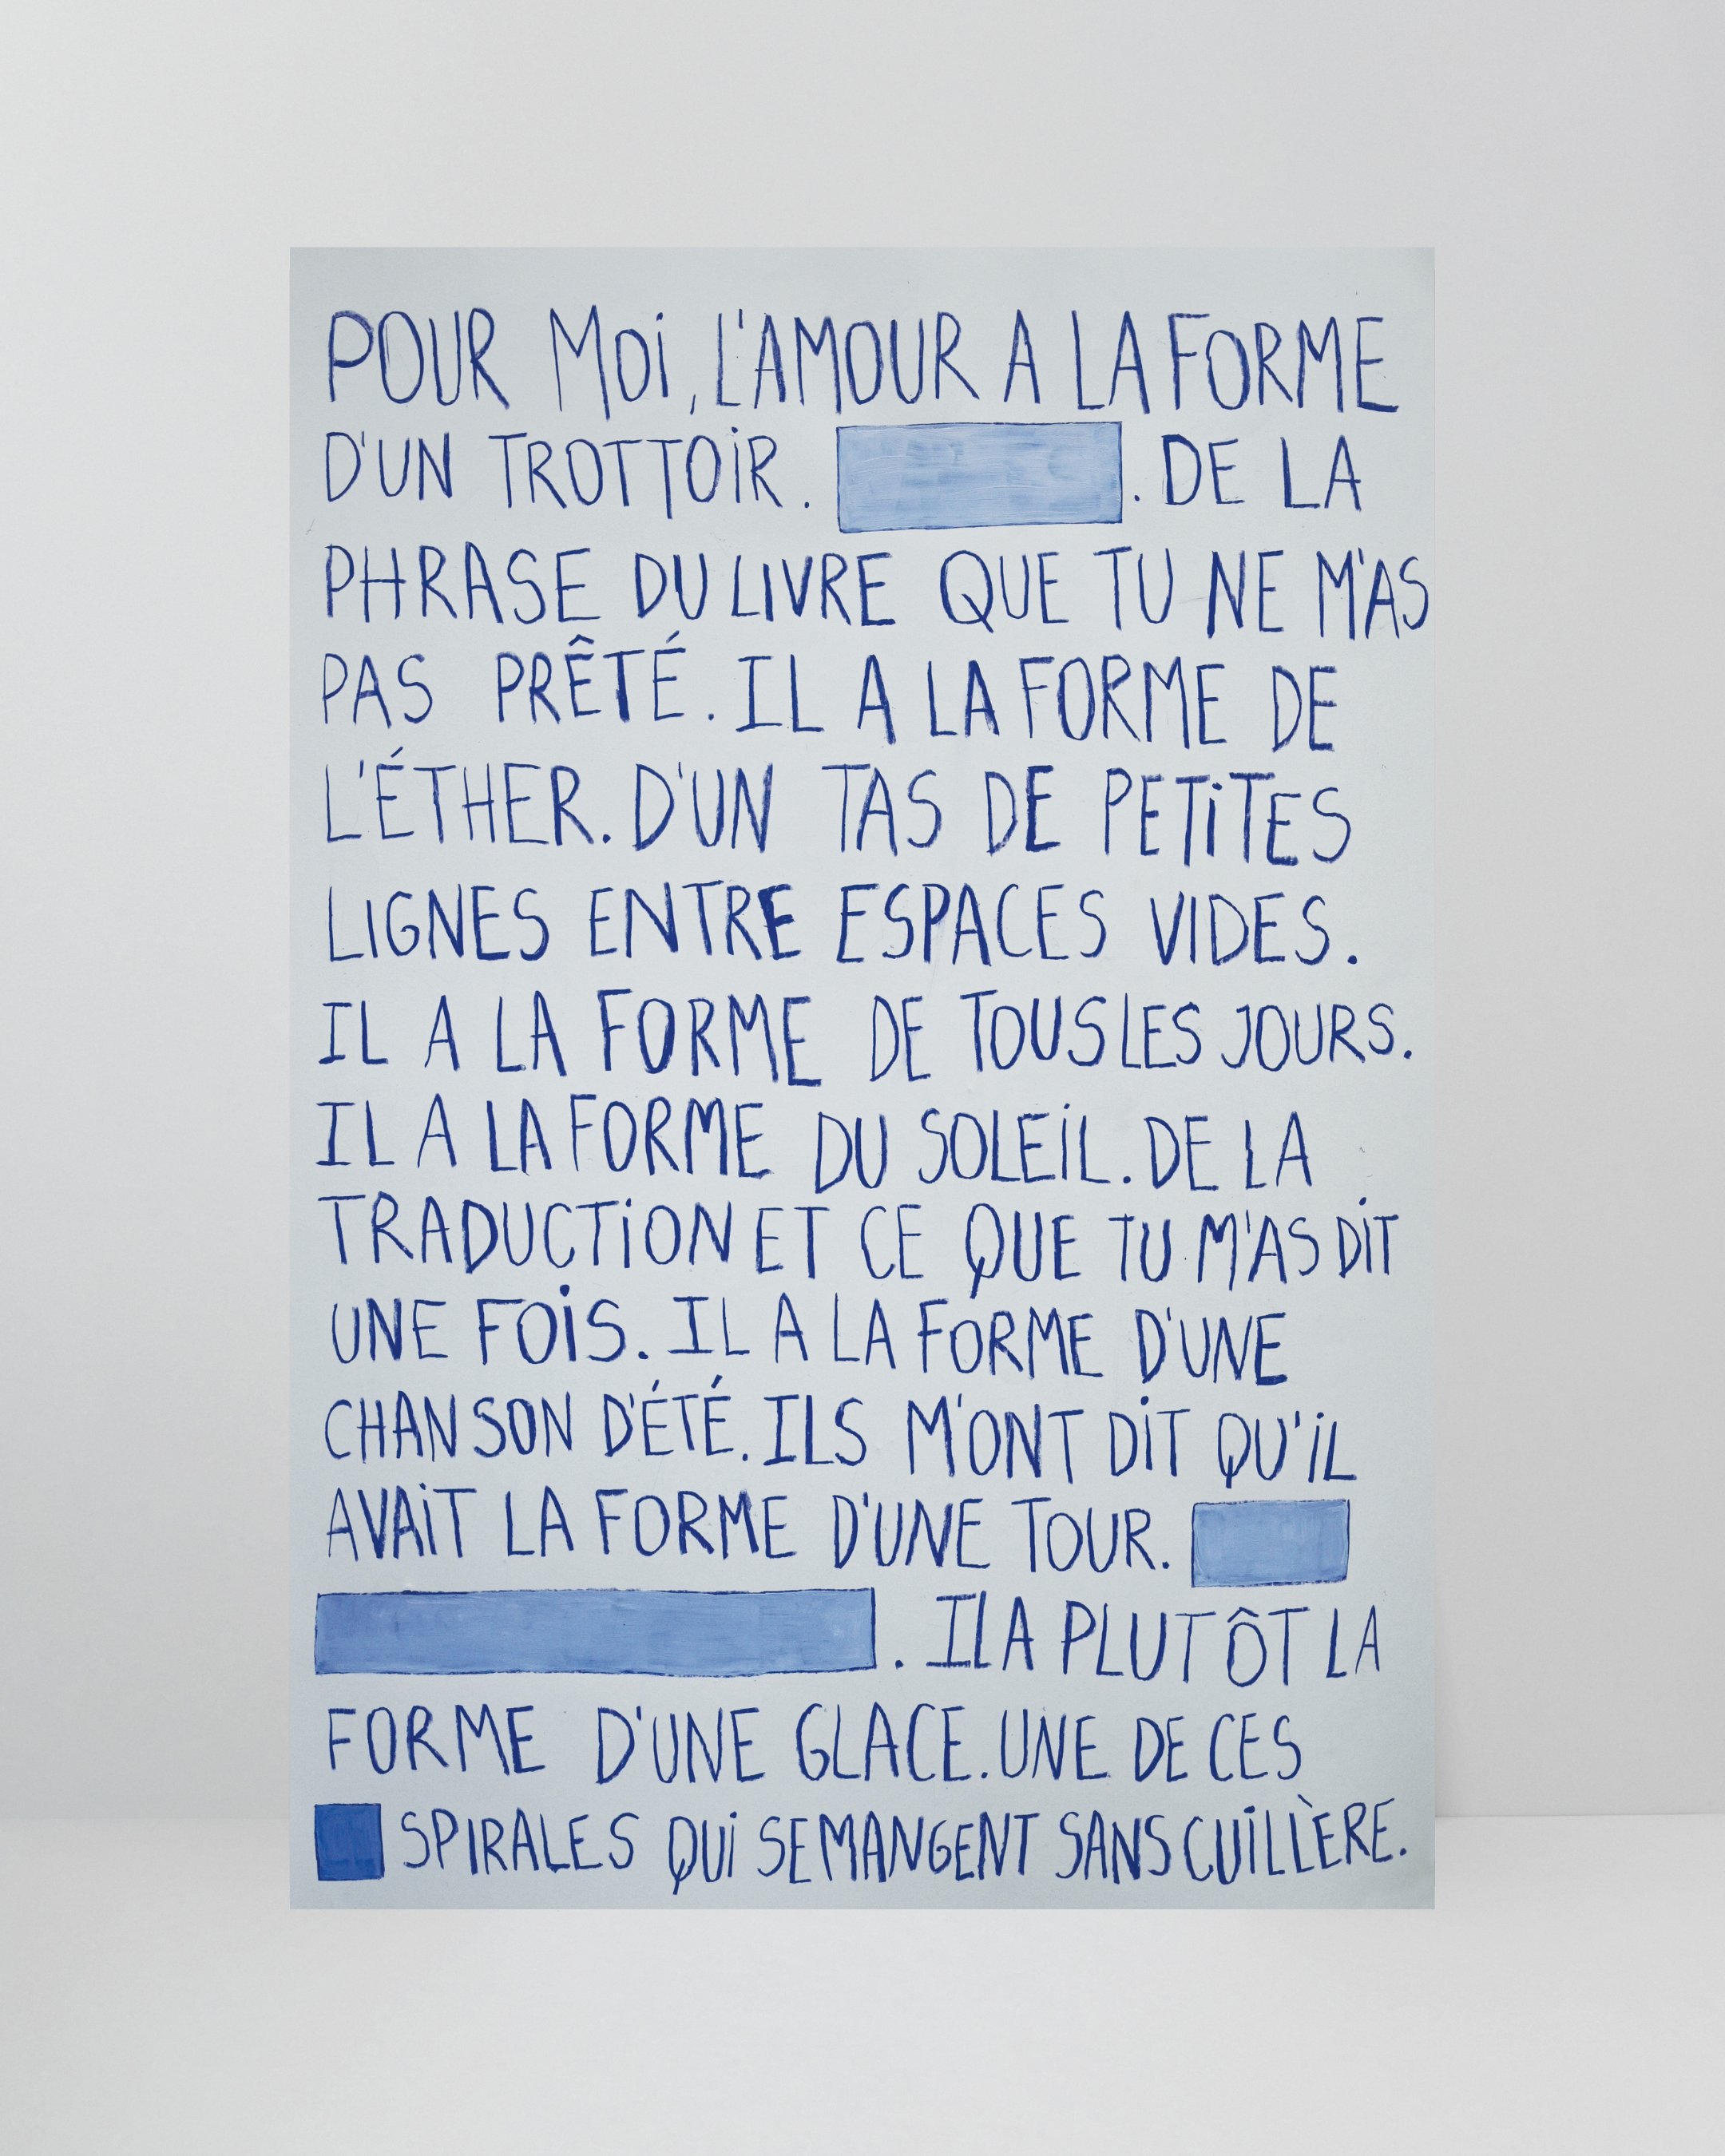 POUR MOi, L'AMOUR A LA FORME
D'UN TROTTOiR. . DE LA
PHRASE DU LIVRE QUE TU NE M'AS
PAS PRÊTÉ. IL A LA FORME DE
L'ÉTHER. D'UN TAS DE PETiTES
LIGNES ENTRE ESPACES VIDES.
IL A LA FORME DE TOUS LES JOURS.
IL A LA FORME DU SOLEiL. DE LA
TRADUCTiON ET CE QUE TU M'AS DiT
UNE FOiS. IL A LA FORME D'UNE
CHANSON D'ÉTÉ. ILS M'ONT DiT QU'iL
AVAiT LA FORME D'UNE TOUR.
. IL A PLUTÔT LA
FORME D'UNE GLACE. UNE DE CES
SPIRALES QUi SE MANGENT SANS CUiLLÈRE.